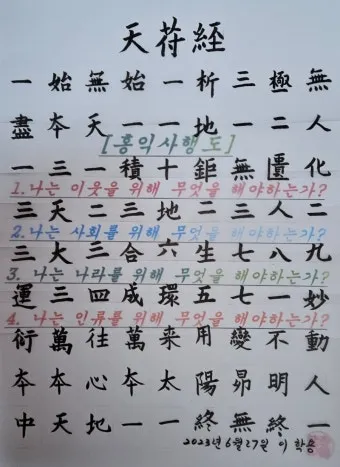 天符經
一始無始一析三極無
盡本天一一地一二人
[홍익사행도]
一三一積十鉅無匱化
1. 나는 이웃을 위해 무엇을 해야하는가?
三天二三地二三人二
2. 나는 사회를 위해 무엇을 해야하는가?
三大三合六生七八九
3. 나는 나라를 위해 무엇을 해야하는가?
運三四成環五七一妙
4. 나는 인류를 위해 무엇을 해야하는가?
衍萬往萬来用變不動
本本心本太陽昴明人
中天地一一終無終一
2023年6월27일 이학송